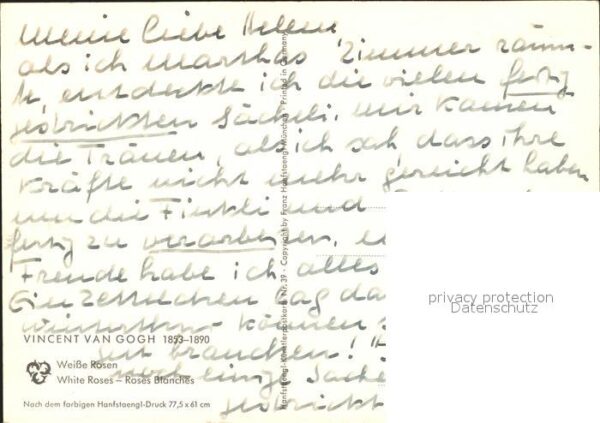 Meine liebe Helen!
als ich Marthas Zimmer räum-
te, entdeckte ich die vielen fertig
gestrickten Sächeli, mir kamen
die Tränen, als ich sah dass ihre
Kräfte nicht mehr gereicht haben
um die und
fertig zu verarbeiten,
Freude habe ich alles
Ein Zettelchen lag da
können
gut brauchen!
noch einige Sache
gestrickt
privacy protection
Datenschutz
VINCENT VAN GOGH 1853–1890
Weiße Rosen
White Roses – Roses Blanches
Nach dem farbigen Hanfstaengl-Druck 77,5 x 61 cm
Hanfstaengl-Künstlerpostkarte Nr. 39 · Copyright by Franz Hanfstaengl München · Printed in Germany